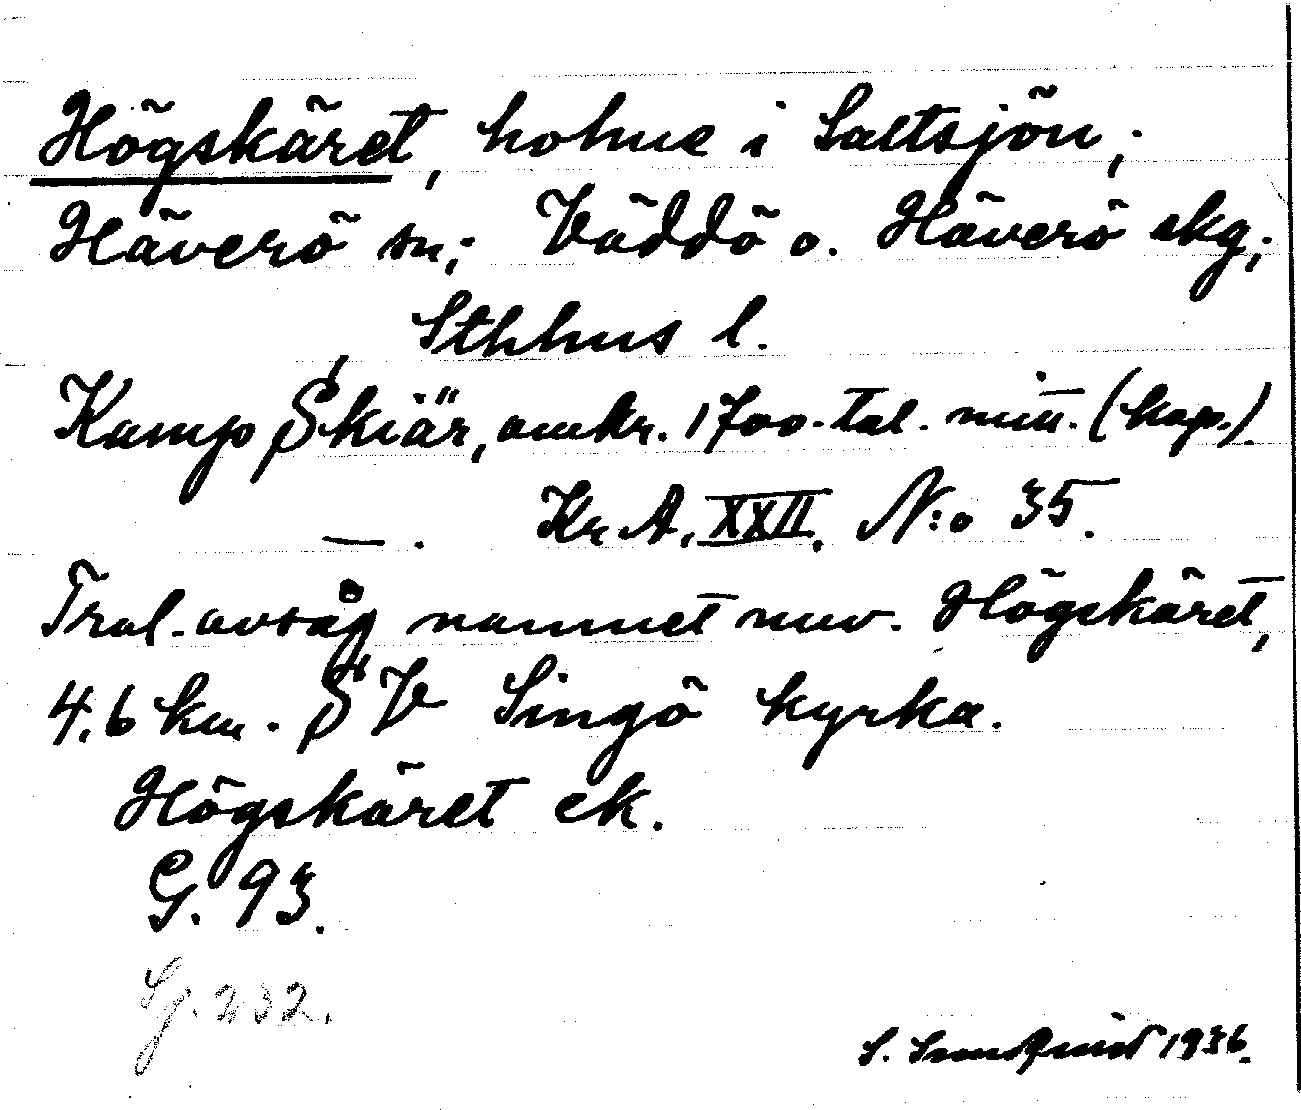 Högskäret, holme i Saltsjön;
Häverö sn; Väddö o. Häverö skg;
Sthlms l.
Kamp Skiär, omkr. 1700-tal. mitt. (kop.)
— . Kr. A. XXII. N:o 35.
Trol. avsåg namnet nuv. Högskäret,
4.6 km. SV Singö kyrka.
Högskäret ek.
G. 93.
Sj. 232.
S. Sundqvist 1936.